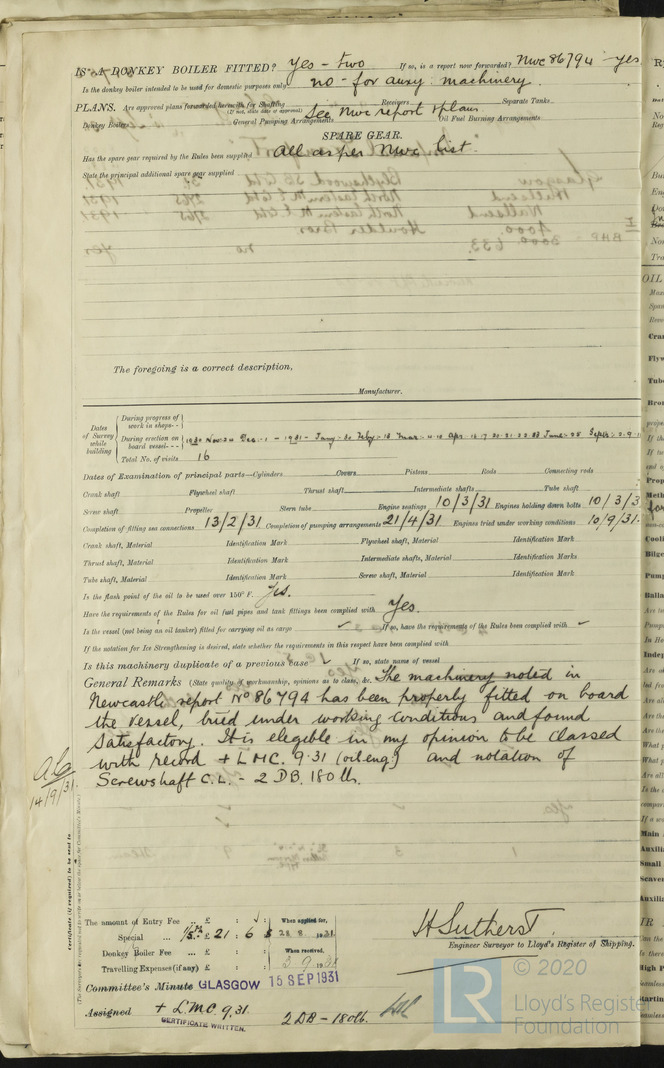 IS A DONKEY BOILER FITTED? Yes - two If so, is a report now forwarded? Nwc 86794 - yes
Is the donkey boiler intended to be used for domestic purposes only no - for auxy machinery
PLANS. Are approved plans forwarded herewith for Shafting Receivers Separate Tanks
(If not, state date of approval) See Nwc report & plans
Donkey Boiler General Pumping Arrangements Oil Fuel Burning Arrangements
SPARE GEAR.
Has the spare gear required by the Rules been supplied all as per Nwc list.
State the principal additional spare gear supplied
The foregoing is a correct description,
Manufacturer.
Dates of Survey while building
During progress of work in shops - -
During erection on board vessel - - - 1930 Nov: 24 Dec: 1 - 1931 - Jany: 20 Feby: 13 Mar: 4.10 Apr. 14.17 20.21.22.28 June: 25 Sept: 2.9.11
Total No. of visits 16
Dates of Examination of principal parts—Cylinders Covers Pistons Rods Connecting rods
Crank shaft Flywheel shaft Thrust shaft Intermediate shafts Tube shaft
Screw shaft Propeller Stern tube Engine seatings 10/3/31 Engines holding down bolts 10/3/3
Completion of fitting sea connections 13/2/31 Completion of pumping arrangements 21/4/31 Engines tried under working conditions 10/9/31.
Crank shaft, Material Identification Mark Flywheel shaft, Material Identification Mark
Thrust shaft, Material Identification Mark Intermediate shafts, Material Identification Marks
Tube shaft, Material Identification Mark Screw shaft, Material Identification Mark
Is the flash point of the oil to be used over 150° F. Yes.
Have the requirements of the Rules for oil fuel pipes and tank fittings been complied with Yes.
Is the vessel (not being an oil tanker) fitted for carrying oil as cargo ✓ If so, have the requirements of the Rules been complied with ✓
If the notation for Ice Strengthening is desired, state whether the requirements in this respect have been complied with
Is this machinery duplicate of a previous case ✓ If so, state name of vessel
General Remarks (State quality of workmanship, opinions as to class, &c. The machinery noted in
Newcastle report No 86794 has been properly fitted on board
the vessel, tried under working conditions and found
satisfactory. It is elegible in my opinion to be classed
with record + LMC. 9.31 (oil eng.) and notation of
Screwshaft C.L. - 2 DB. 180 lb.
14/9/31.
Certificate (if required) to be sent to
The amount of Entry Fee .. £ : ✓ : When applied for,
Special ... 1/5th £ 21 : 6 : 8 28. 8. 1931.
Donkey Boiler Fee ... £ : : When received,
Travelling Expenses (if any) £ : : 3. 9. 1931
H Sutherst.
Engineer Surveyor to Lloyd's Register of Shipping.
Committee's Minute GLASGOW 15 SEP 1931
Assigned + LMC 9.31.
CERTIFICATE WRITTEN. 2 DB - 180 lb.
© 2020
Lloyd's Register
Foundation